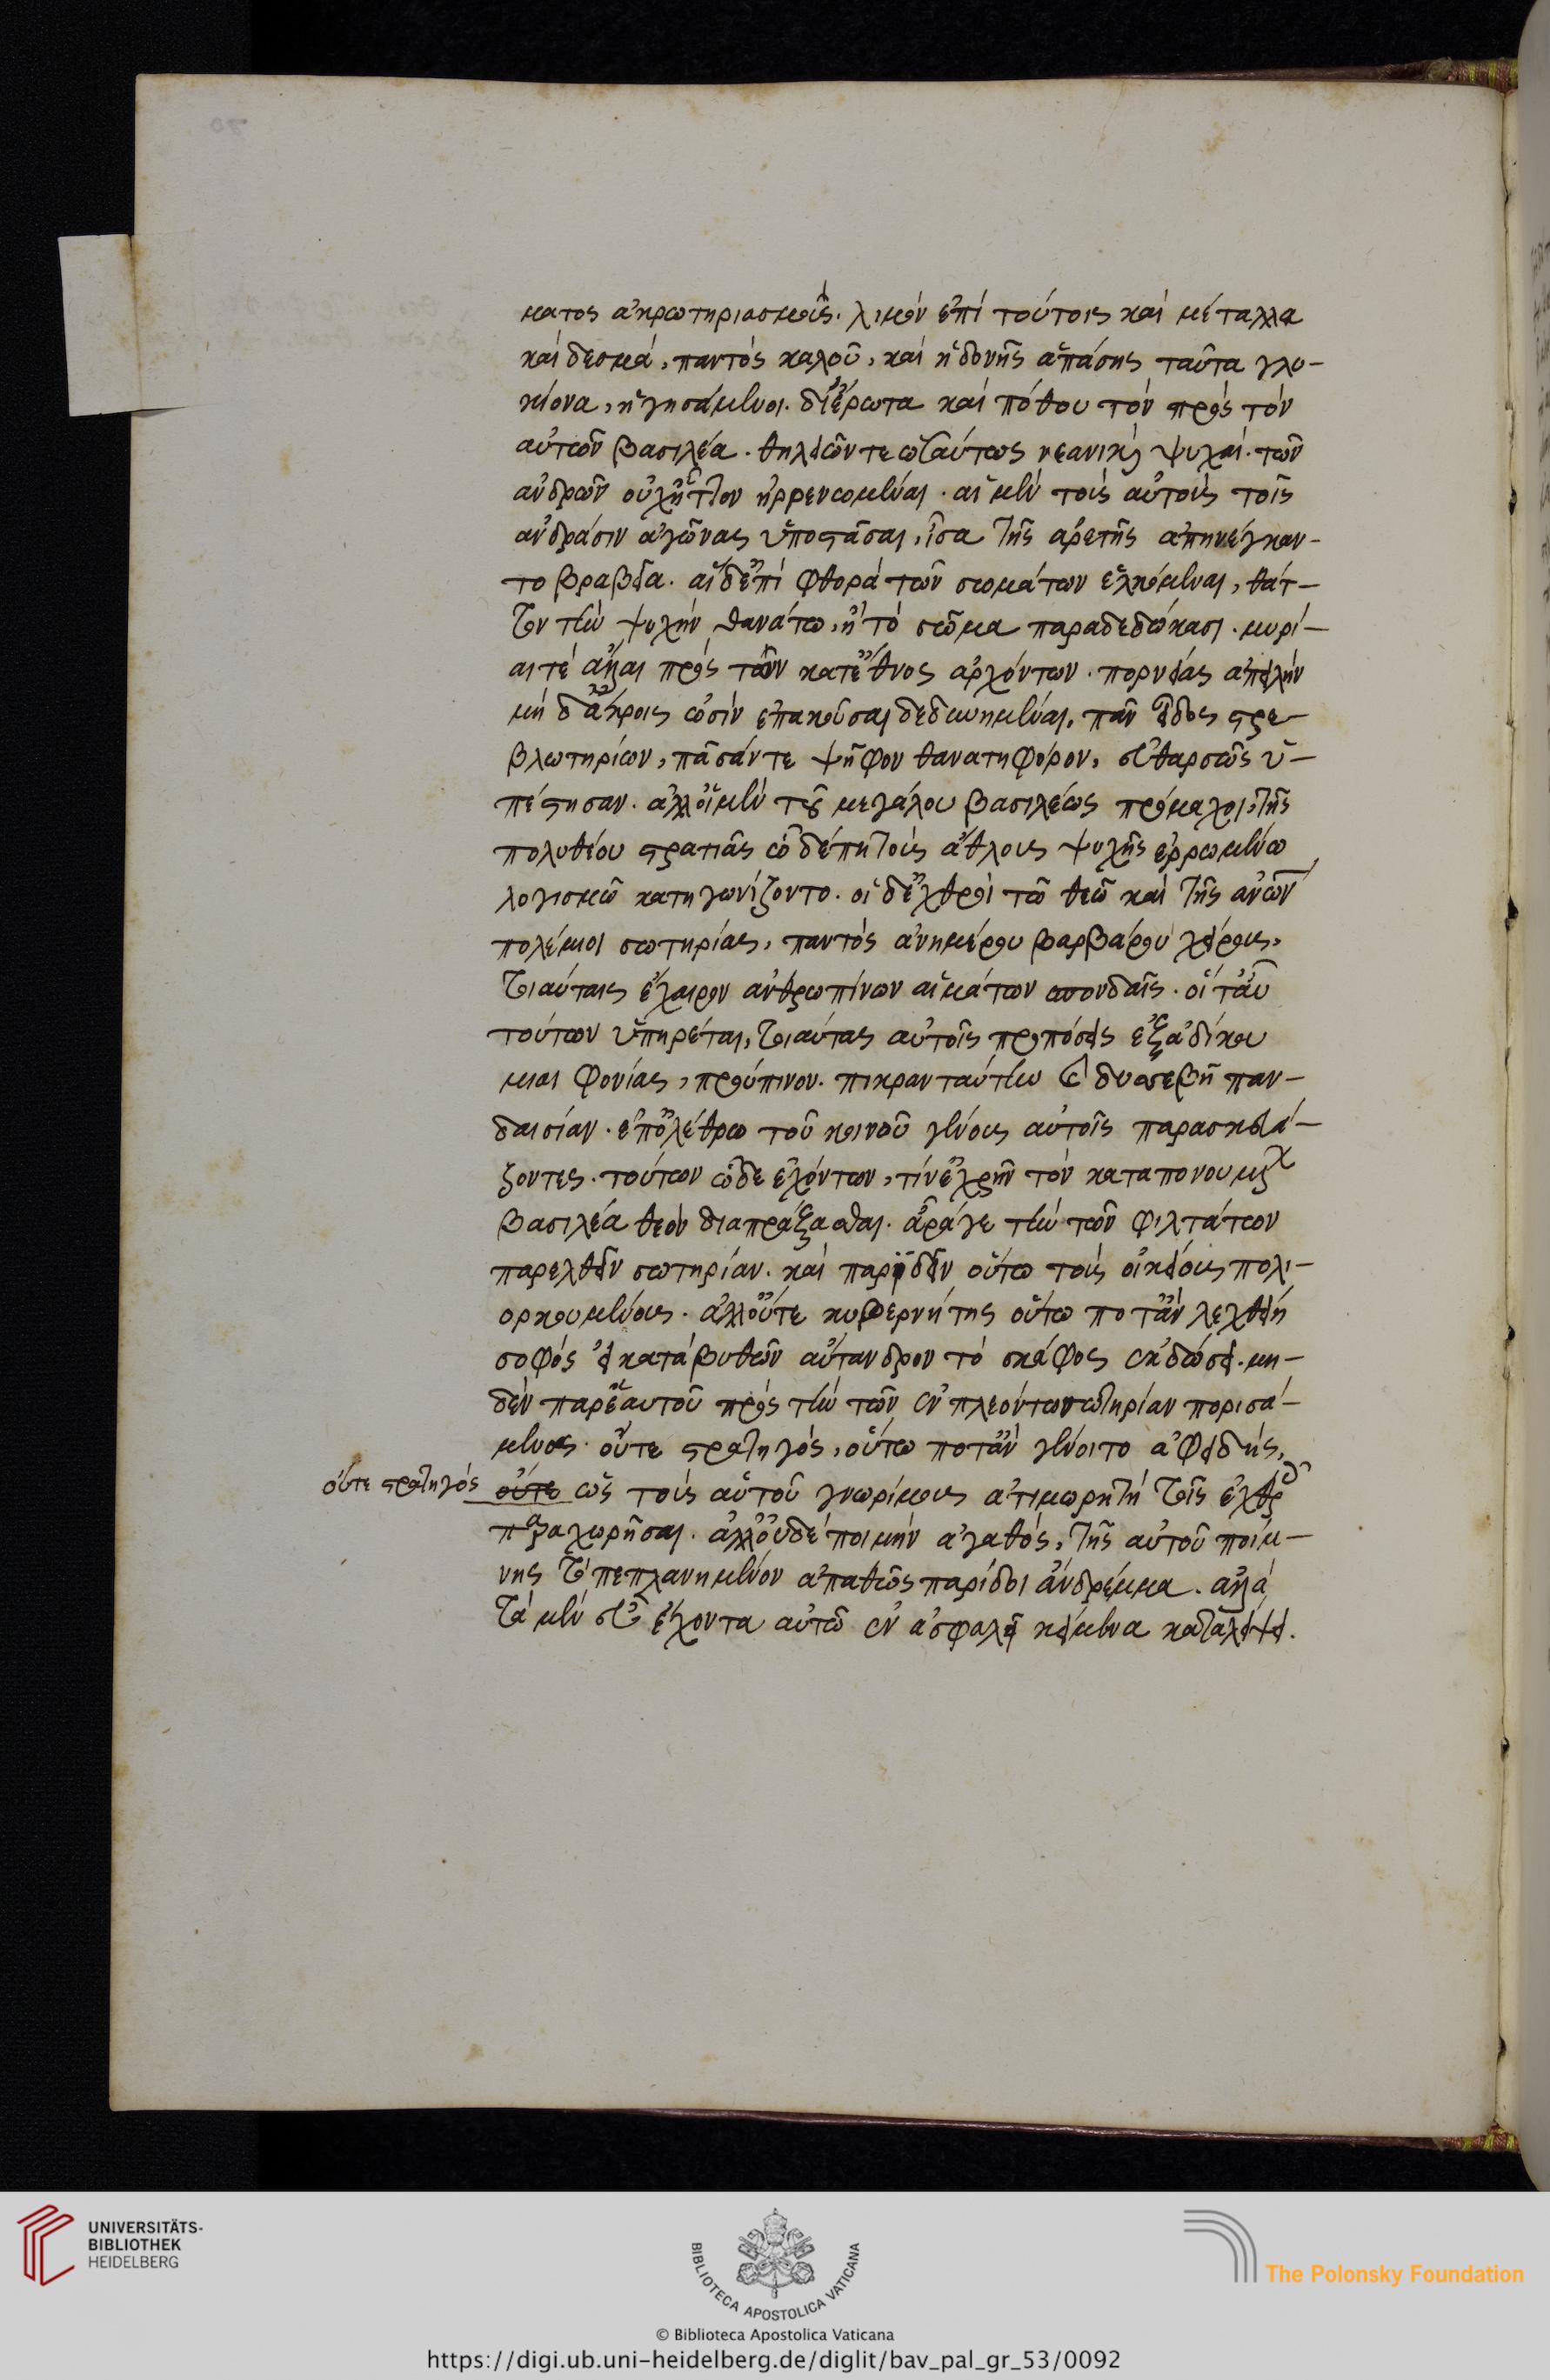 ματος ἀκρωτηριασμοὺς. λιμὸν ἐπὶ τούτοις καὶ μέταλλα
καὶ δεσμὰ, παντὸς καλοῦ, καὶ ἡδονῆς ἁπάσης ταῦτα γλυ-
κίονα, ἡγησάμενοι. δι' ἔρωτα καὶ πόθου τὸν πρὸς τὸν
αὐτῶν βασιλέα. θηλειῶν τε ὡσαύτως νεανικαὶ ψυχαὶ. τῶν
ἀνδρῶν οὐχ ἧττον ἠρρενωμέναι. αἱ μὲν τοὺς αὐτοὺς τοῖς
ἀνδράσιν ἀγῶνας ὑποστᾶσαι, ἶσα τῆς ἀρετῆς ἀπηνέγκαν-
το βραβεῖα. αἱ δ' ἐπὶ φθορὰ τῶν σωμάτων ἑλκόμεναι, θάτ-
τον τὴν ψυχὴν θανάτω, ἢ τὸ σῶμα παραδεδώκασι. μυρί-
αι τὲ ἄλλαι πρὸς τῶν κατ' ἔθνος ἀρχόντων. πορνείας ἀπειλὴν
μὴ δ' ἄκροις ὠσὶν ἐπακοῦσαι δεδυνημέναι, πᾶν εἶδος στρε-
βλωτηρίων, πᾶσάν τε ψῆφον θανατηφόρον, εὐθαρσῶς ὑ-
πέστησαν. ἀλλ' οἱ μὲν τοῦ μεγάλου βασιλέως πρόμαχοι, τῆς
πολυθέου στρατιᾶς ὧδέ πη τοὺς ἄθλους ψυχῆς ἐρρωμένω
λογισμῶ κατηγωνίζοντο. οἱ δ' ἐχθροὶ τῶ θεῶ καὶ τῆς ἀνων
πολέμιοι σωτηρίας, παντὸς ἀνημέρου βαρβάρου χείρους,
τοιαύταις ἔχαιρον ἀνθρωπίνων αἱμάτων σπονδαῖς. οἵ τ' αὖ
τούτων ὑπηρέται, τοιαύτας αὐτοῖς προπόσεις ἐξ ἀδίκου
μιαι φονίας, προύπινον. πικραν ταύτην καὶ δυσσεβῆ παν-
δαισίαν. ἐπ' ὀλέθρω τοῦ κοινοῦ γένους αὐτοῖς παρασκευά-
ζοντες. τούτων ὧδε ἐχόντων, τίν' ἐχρῆν τὸν καταπονουμέ
βασιλέα θεὸν διαπράξασθαι. ἆρά γε τὴν τῶν φιλτάτων
παρελθεῖν σωτηρίαν. καὶ παριδεῖν οὕτω τοὺς οἰκείους πολι-
ορκουμένους. ἀλλ' οὔτε κυβερνήτης οὕτω ποτ' ἂν λεχθείη
σοφὸς εἰ κατὰ βυθῶν αὔτανδρον τὸ σκάφος ἐκδώσει. μη-
δὲν παρ' ἑαυτοῦ πρὸς τὴν τῶν ἐνπλεόντων σωτηρίαν πορισά-
μενος. οὔτε στρατηγὸς, οὕτω ποτ' ἂν γένοιτο ἀφειδὴς,
οὔτε στρατηγὸς οὔτε ὡς τοὺς αὑτοῦ γνωρίμους ἀτιμωρητὴ τοῖς ἐχθρ
παραχωρῆσαι. ἀλλ' οὐδὲ ποιμὴν ἀγαθὸς, τῆς αὐτοῦ ποίμ-
νης τὸ πεπλανημένον ἀπαθῶς παρίδοι ἂν δρέμμα. ἀλλὰ
τὰ μὲν εὖ ἔχοντα αὐτῶ ἐν ἀσφαλεῖ κείμενα καταλείψει.
UNIVERSITÄTS-
BIBLIOTHEK
HEIDELBERG
BIBLIOTECA APOSTOLICA VATICANA
The Polonsky Foundation
© Biblioteca Apostolica Vaticana
https://digi.ub.uni-heidelberg.de/diglit/bav_pal_gr_53/0092